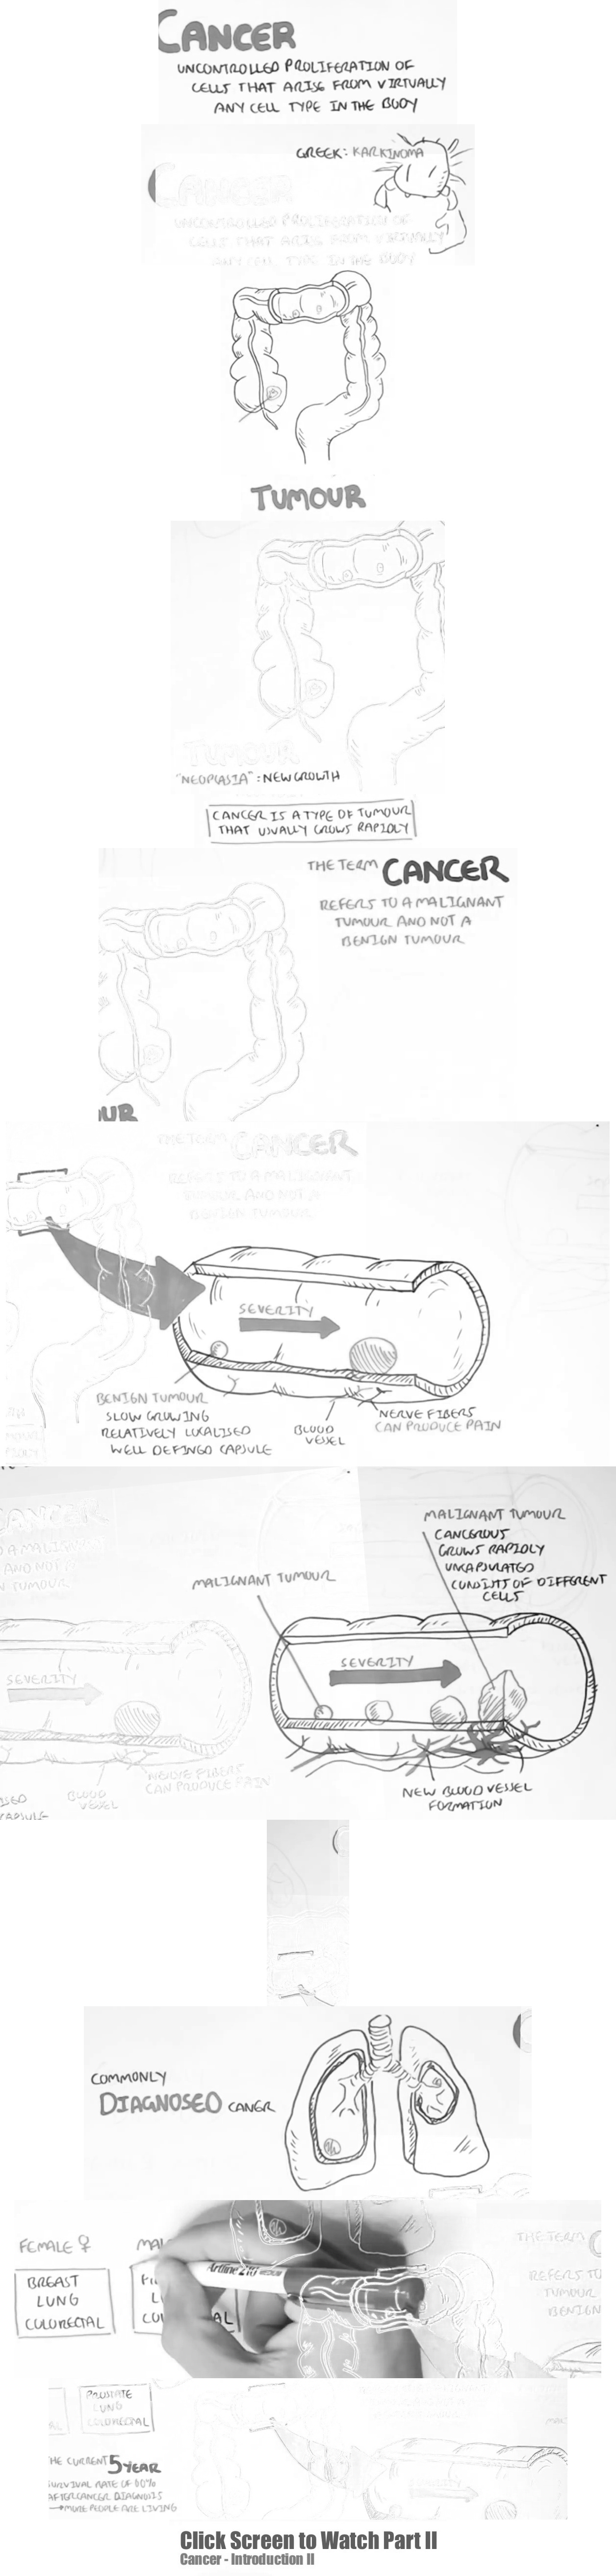 CANCER
UNCONTROLLED PROLIFERATION OF
CELLS THAT ARISE FROM VIRTUALLY
ANY CELL TYPE IN THE BODY
GREEK: KARKINOMA
CANCER
UNCONTROLLED PROLIFERATION OF
CELLS THAT ARISE FROM VIRTUALLY
ANY CELL TYPE IN THE BODY
TUMOUR
TUMOUR
"NEOPLASIA": NEW GROWTH
CANCER IS A TYPE OF TUMOUR
THAT USUALLY GROWS RAPIDLY
THE TERM CANCER
REFERS TO A MALIGNANT
TUMOUR AND NOT A
BENIGN TUMOUR
OUR
THE TERM CANCER
REFERS TO A MALIGNANT
TUMOUR AND NOT A
BENIGN TUMOUR
SEVERITY
BENIGN TUMOUR
SLOW GROWING
RELATIVELY LOCALISED
WELL DEFINED CAPSULE
BLOOD
VESSEL
NERVE FIBERS
CAN PRODUCE PAIN
CANCER
TO A MALIGNANT
AND NOT A
TUMOUR
MALIGNANT TUMOUR
CANCEROUS
GROWS RAPIDLY
UNCAPSULATED
CONSISTS OF DIFFERENT
CELLS
MALIGNANT TUMOUR
SEVERITY
SEVERITY
NERVE FIBERS
CAN PRODUCE PAIN
BLOOD
VESSEL
CAPSULE
NEW BLOOD VESSEL
FORMATION
COMMONLY
DIAGNOSED CANER
FEMALE ♀
BREAST
LUNG
COLORECTAL
MAL
Artline 210
THE TERM C
REFERS TO
TUMOUR
BENIGN
PROSTATE
LUNG
COLORECTAL
HE CURRENT 5 YEAR
SURVIVAL RATE OF 60%
AFTER CANCER DIAGNOSIS
→ MORE PEOPLE ARE LIVING
Click Screen to Watch Part II
Cancer - Introduction II